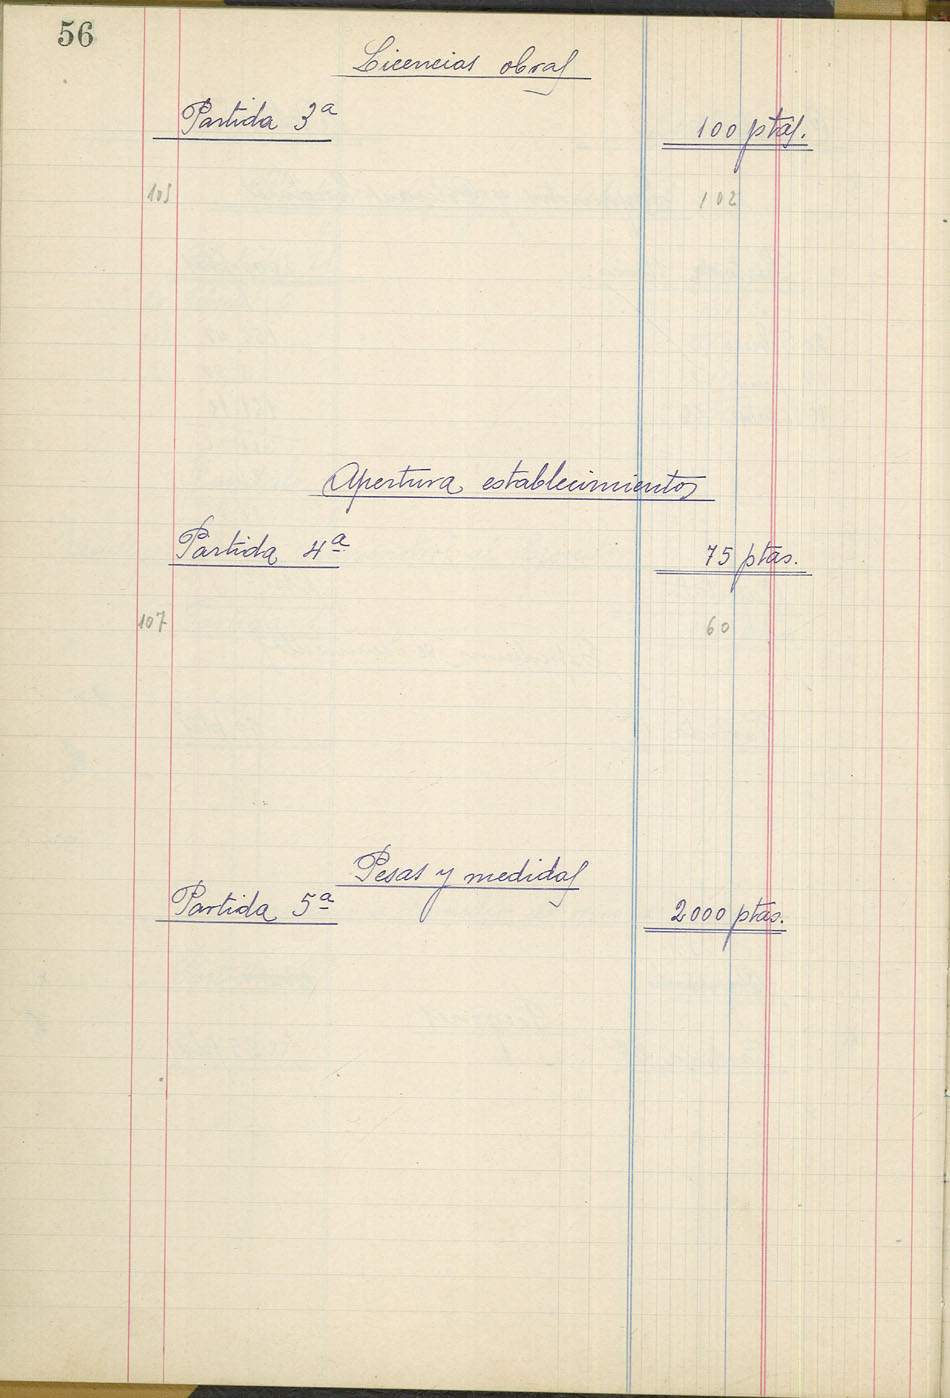 56
Licencias obras
Partida 3ª 100 ptas.
105 102
Apertura establecimientos
Partida 4ª 75 ptas.
107 60
Pesas y medidas
Partida 5ª 2000 ptas.